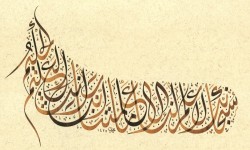 سبحانك لا علم لنا إلا ما علمتنا إنك أنت العليم الحكيم